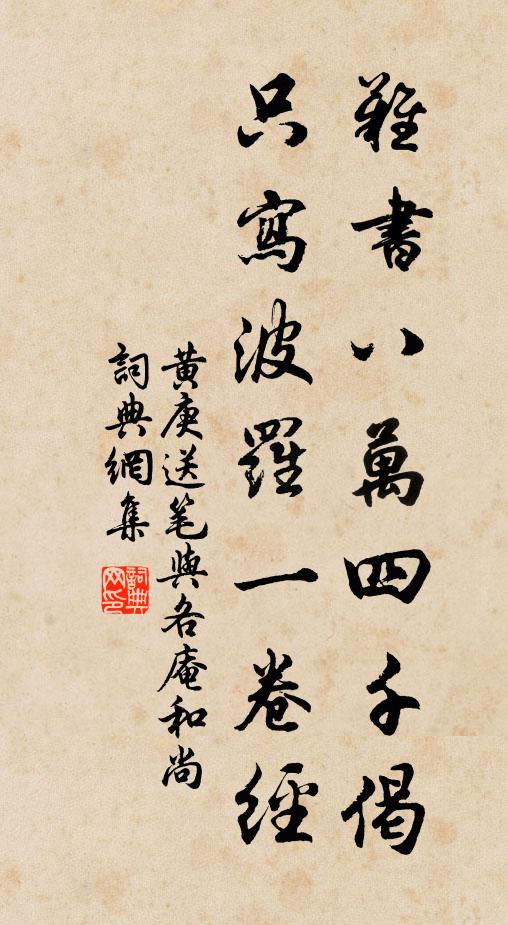 難書八萬四千偈
只寫波羅一卷經
黄庚送笔與各庵和尚
詞典網集
詞典網印